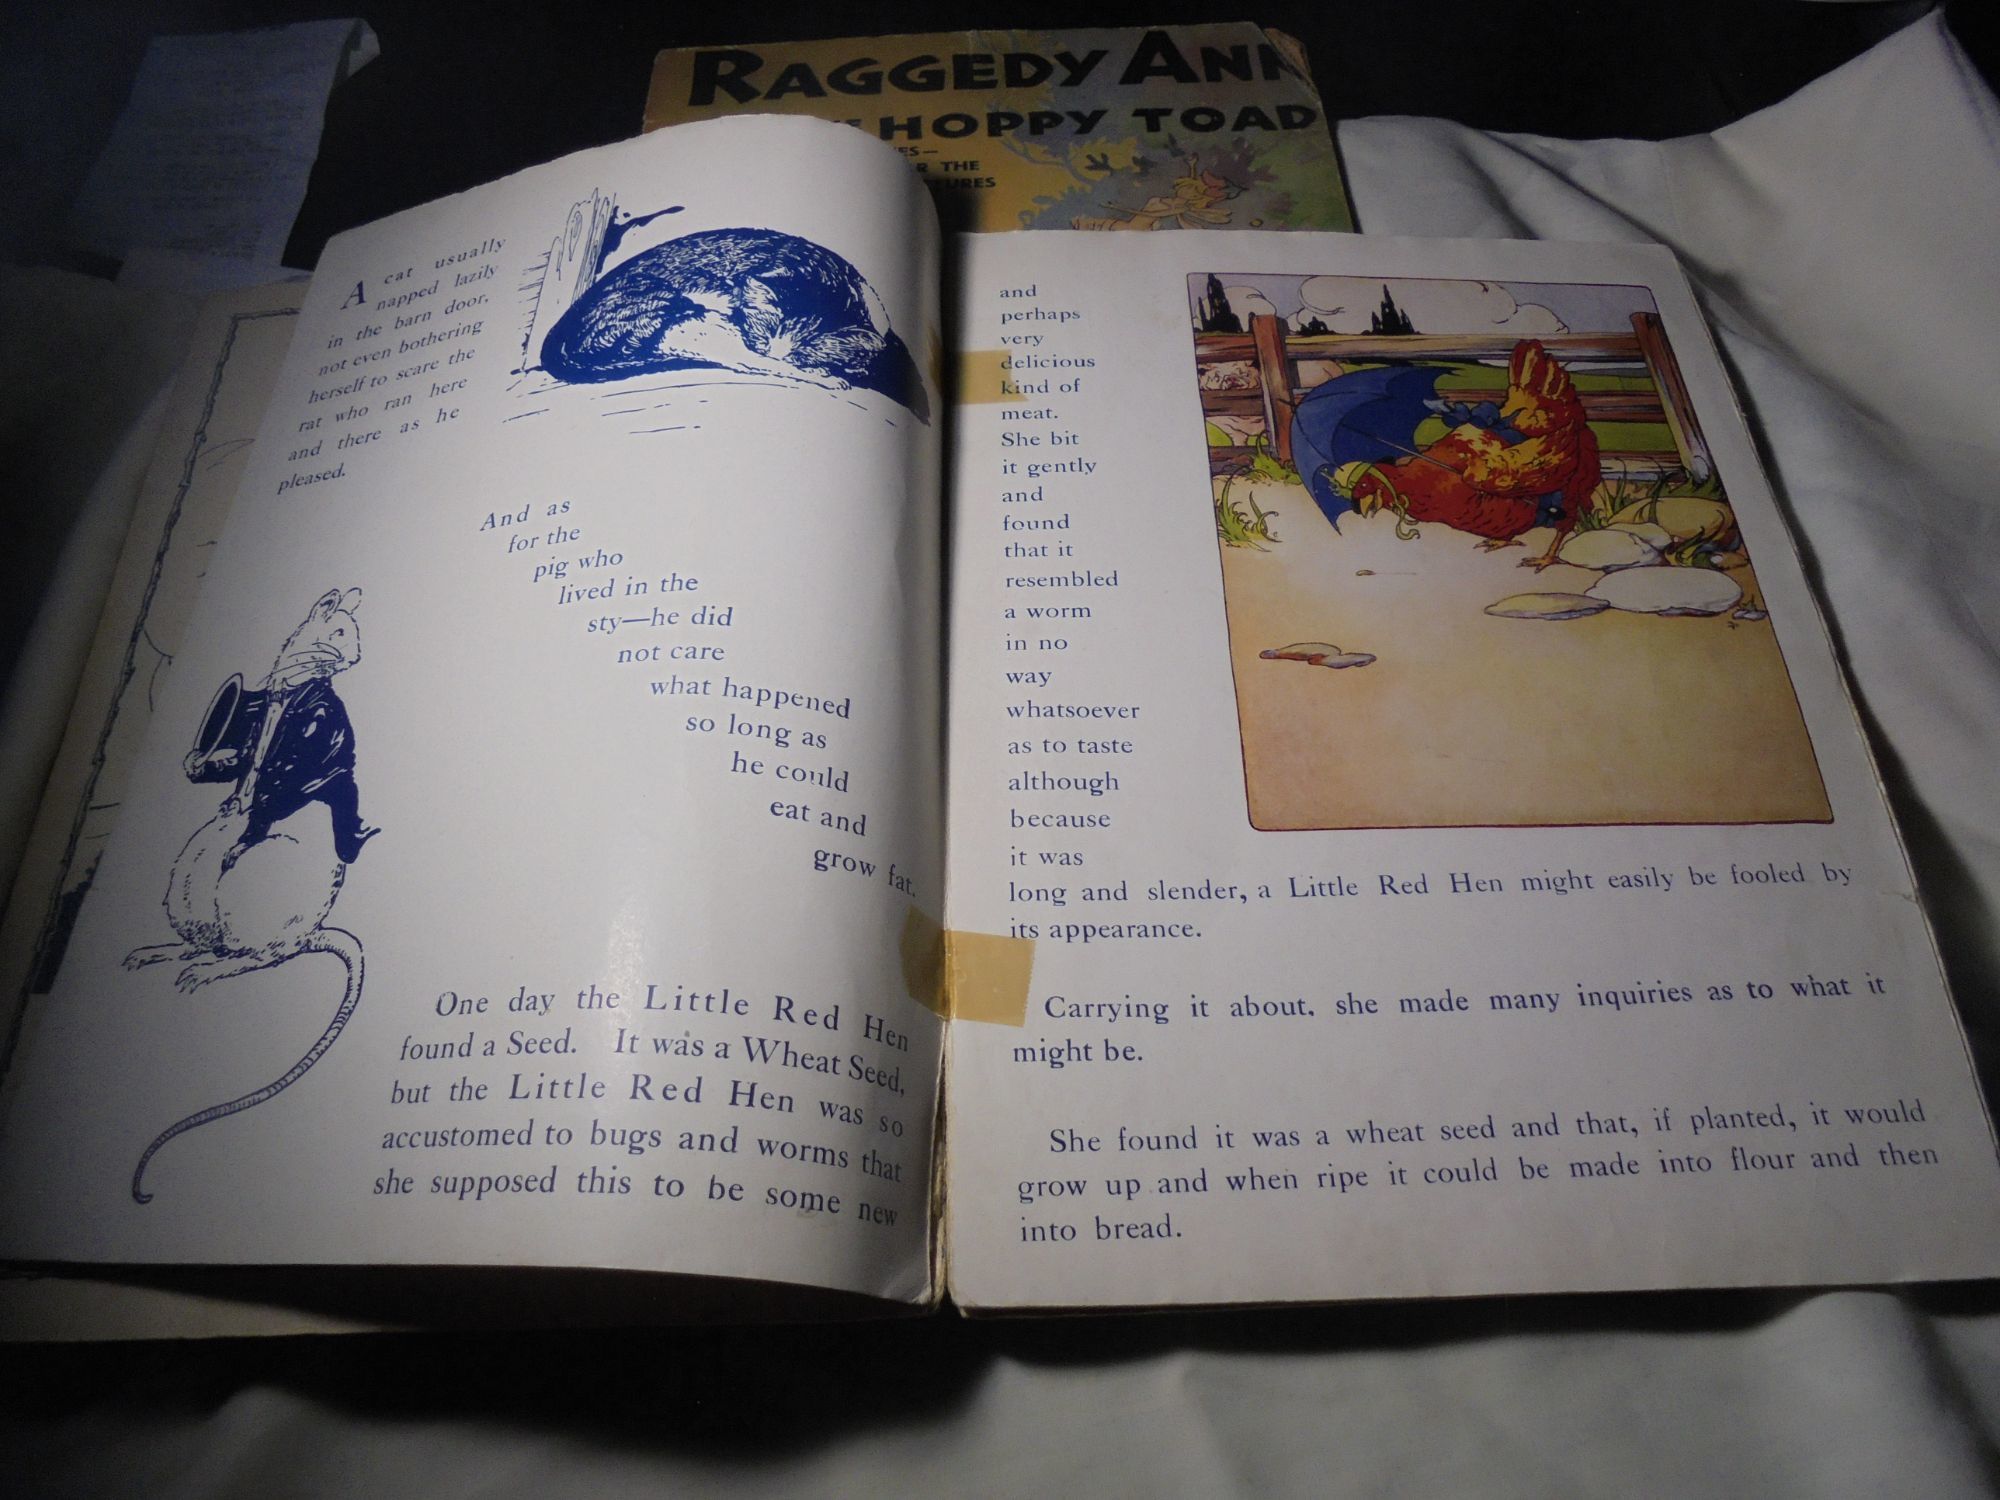 RAGGEDY ANN
HOPPY TOAD
THE
A cat usually
napped lazily
in the barn door,
not even bothering
herself to scare the
rat who ran here
and there as he
pleased.
And as
for the
pig who
lived in the
sty—he did
not care
what happened
so long as
he could
eat and
grow fat.
One day the Little Red Hen
found a Seed. It was a Wheat Seed,
but the Little Red Hen was so
accustomed to bugs and worms that
she supposed this to be some new
and
perhaps
very
delicious
kind of
meat.
She bit
it gently
and
found
that it
resembled
a worm
in no
way
whatsoever
as to taste
although
because
it was
long and slender, a Little Red Hen might easily be fooled by
its appearance.
Carrying it about, she made many inquiries as to what it
might be.
She found it was a wheat seed and that, if planted, it would
grow up and when ripe it could be made into flour and then
into bread.